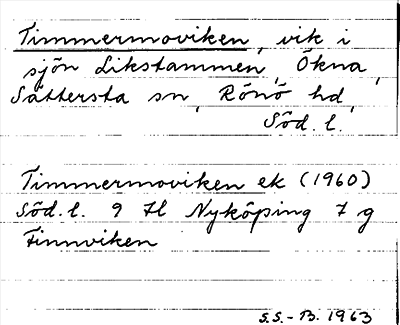 Timmermoviken, vik i
sjön Likstammen, Ökna,
Sättersta sn, Rönö hd,
Söd. l.
Timmermoviken ek (1960)
Söd. l. 9 Hl Nyköping 7 g
Finnviken
S.S.-B. 1963